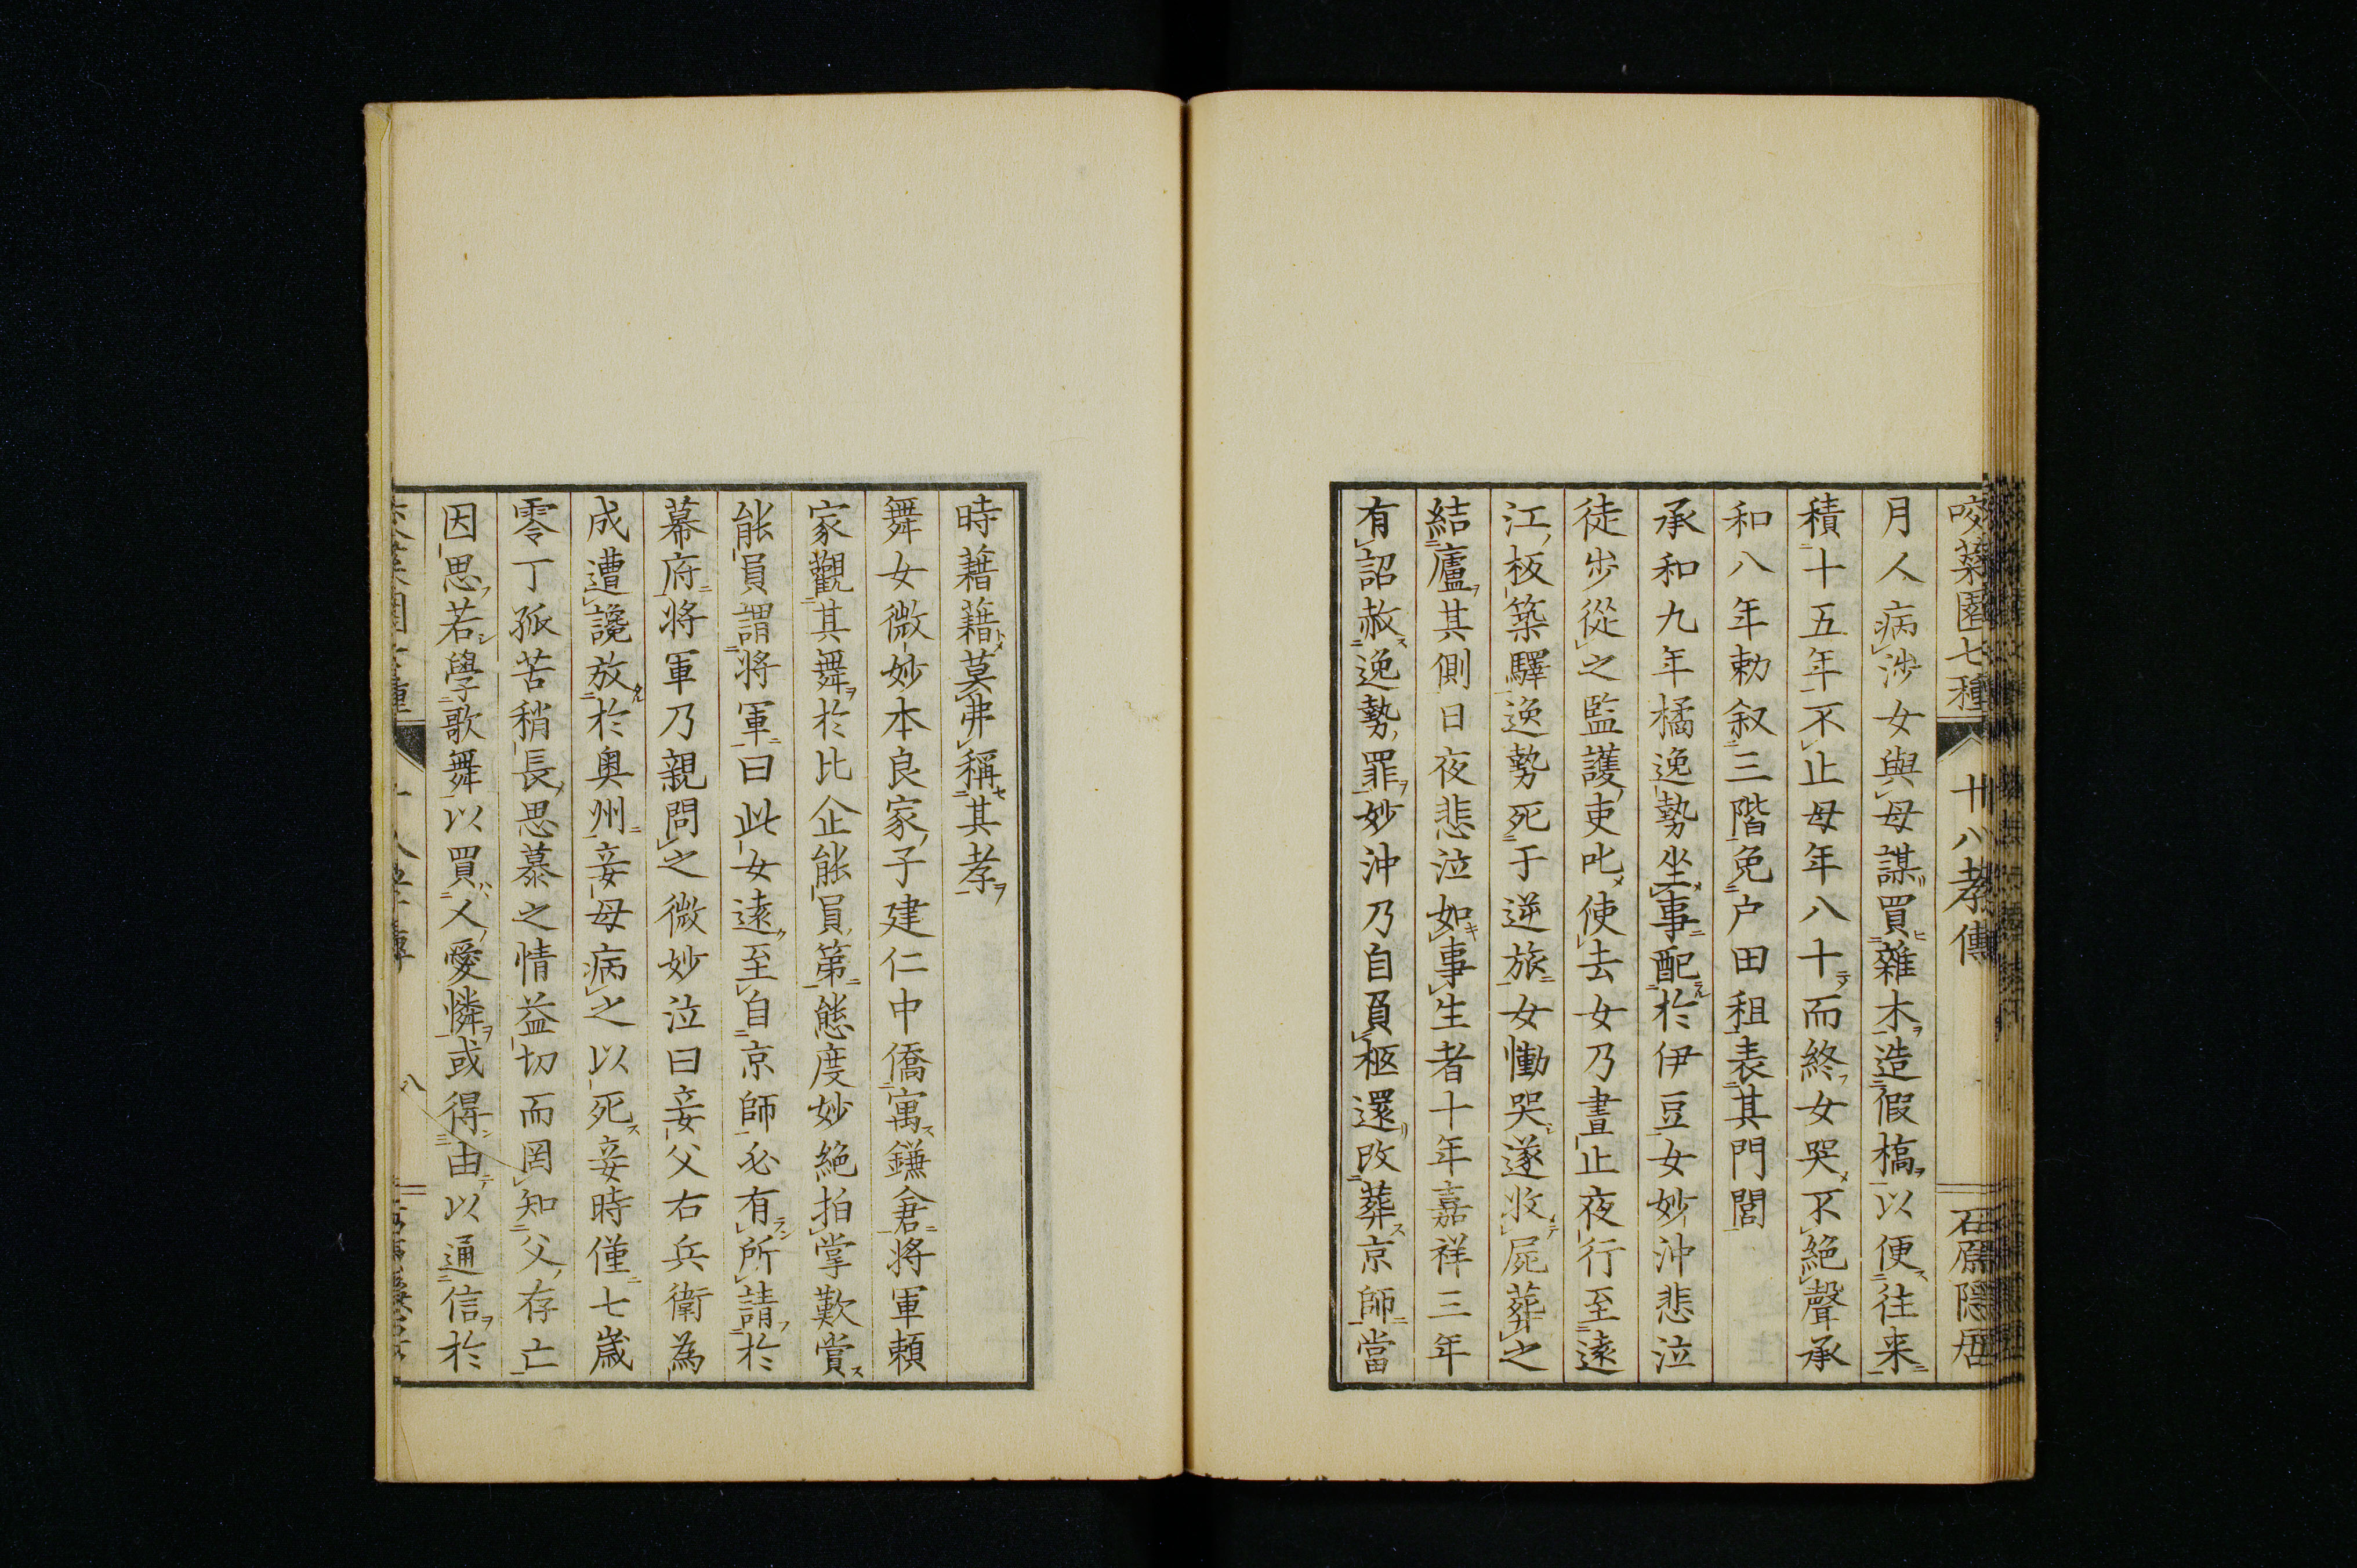 咬菜園七種 廿八孝傳 石原隱居
月人病涉女與母謀買雜木造假橋以便往来
積十五年不止母年八十而終女哭不絕聲承
和八年勅叙三階免户田租表其門閭
承和九年橘逸勢坐事配於伊豆女妙沖悲泣
徒步從之監護吏叱使去女乃晝止夜行至遠
江板築驛逸勢死于逆旅女慟哭遂收屍葬之
結廬其側日夜悲泣如事生者十年嘉祥三年
有詔赦逸勢罪妙沖乃自負柩還改葬京師當
時藉藉莫弗稱其孝
舞女微妙本良家子建仁中僑寓鎌倉將軍頼
家觀其舞於比企能員第態度妙絕拍掌歎賞
能員謂將軍曰此女遠至自京師必有所請於
幕府將軍乃親問之微妙泣曰妾父右兵衛為
成遭讒放於奥州妾母病之以死妾時僅七歲
零丁孤苦稍長思慕之情益切而罔知父存亡
因思若學歌舞以買人愛憐或得由以通信於